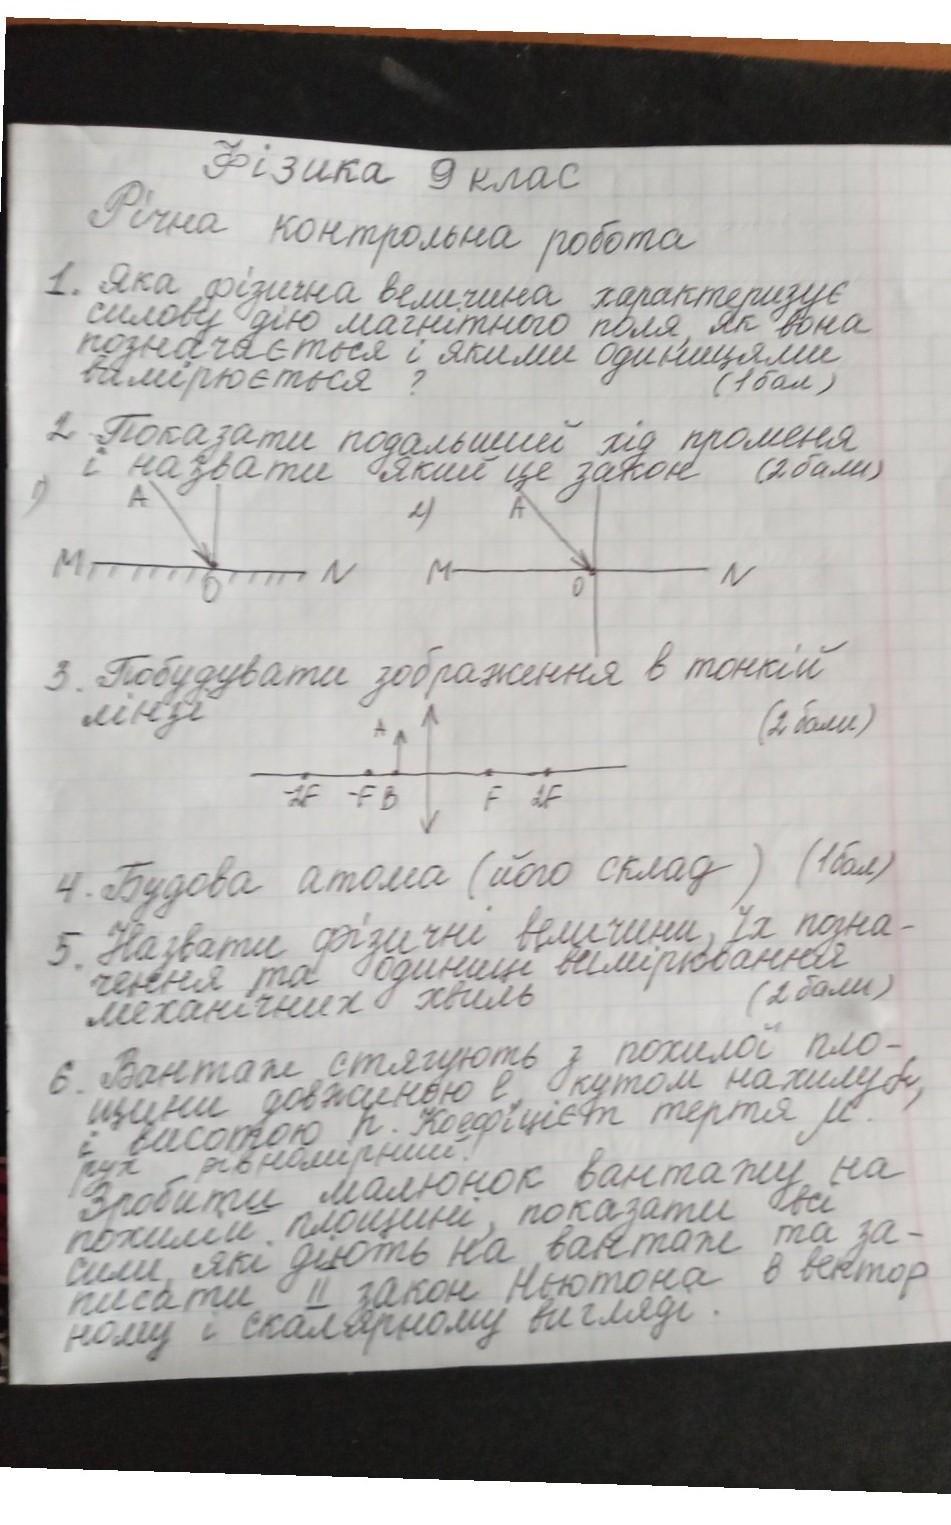 Фізика 9 клас
Річна контрольна робота
1. Яка фізична величина характеризує
силову дію магнітного поля, як вона
позначається і якими одиницями
вимірюється ? (1 бал)
2 Показати подальший хід променя
і назвати який це закон (2 бали)
1) A 2) A
M O N M O N
3. Побудувати зображення в тонкій
лінзі (2 бали)
A
-2F -F B F 2F
4. Будова атома (його склад) (1 бал)
5. Назвати фізичні величини, їх позна-
чення та одиниці вимірювання
механічних хвиль (2 бали)
6. Вантаж стягують з похилої пло-
щини довжиною l, кутом нахилу
і висотою h. Коефіцієт тертя μ.
рух рівномірний!
Зробити малюнок вантажу на
похилій площині, показати всі
сили, які діють на вантаж та за-
писати II закон Ньютона в вектор
ному і скалярному вигляді.